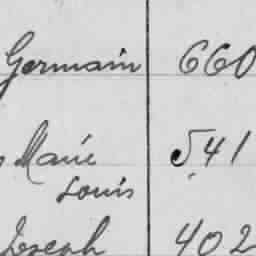 Germain 660
Marie 541
Louis
Joseph 402